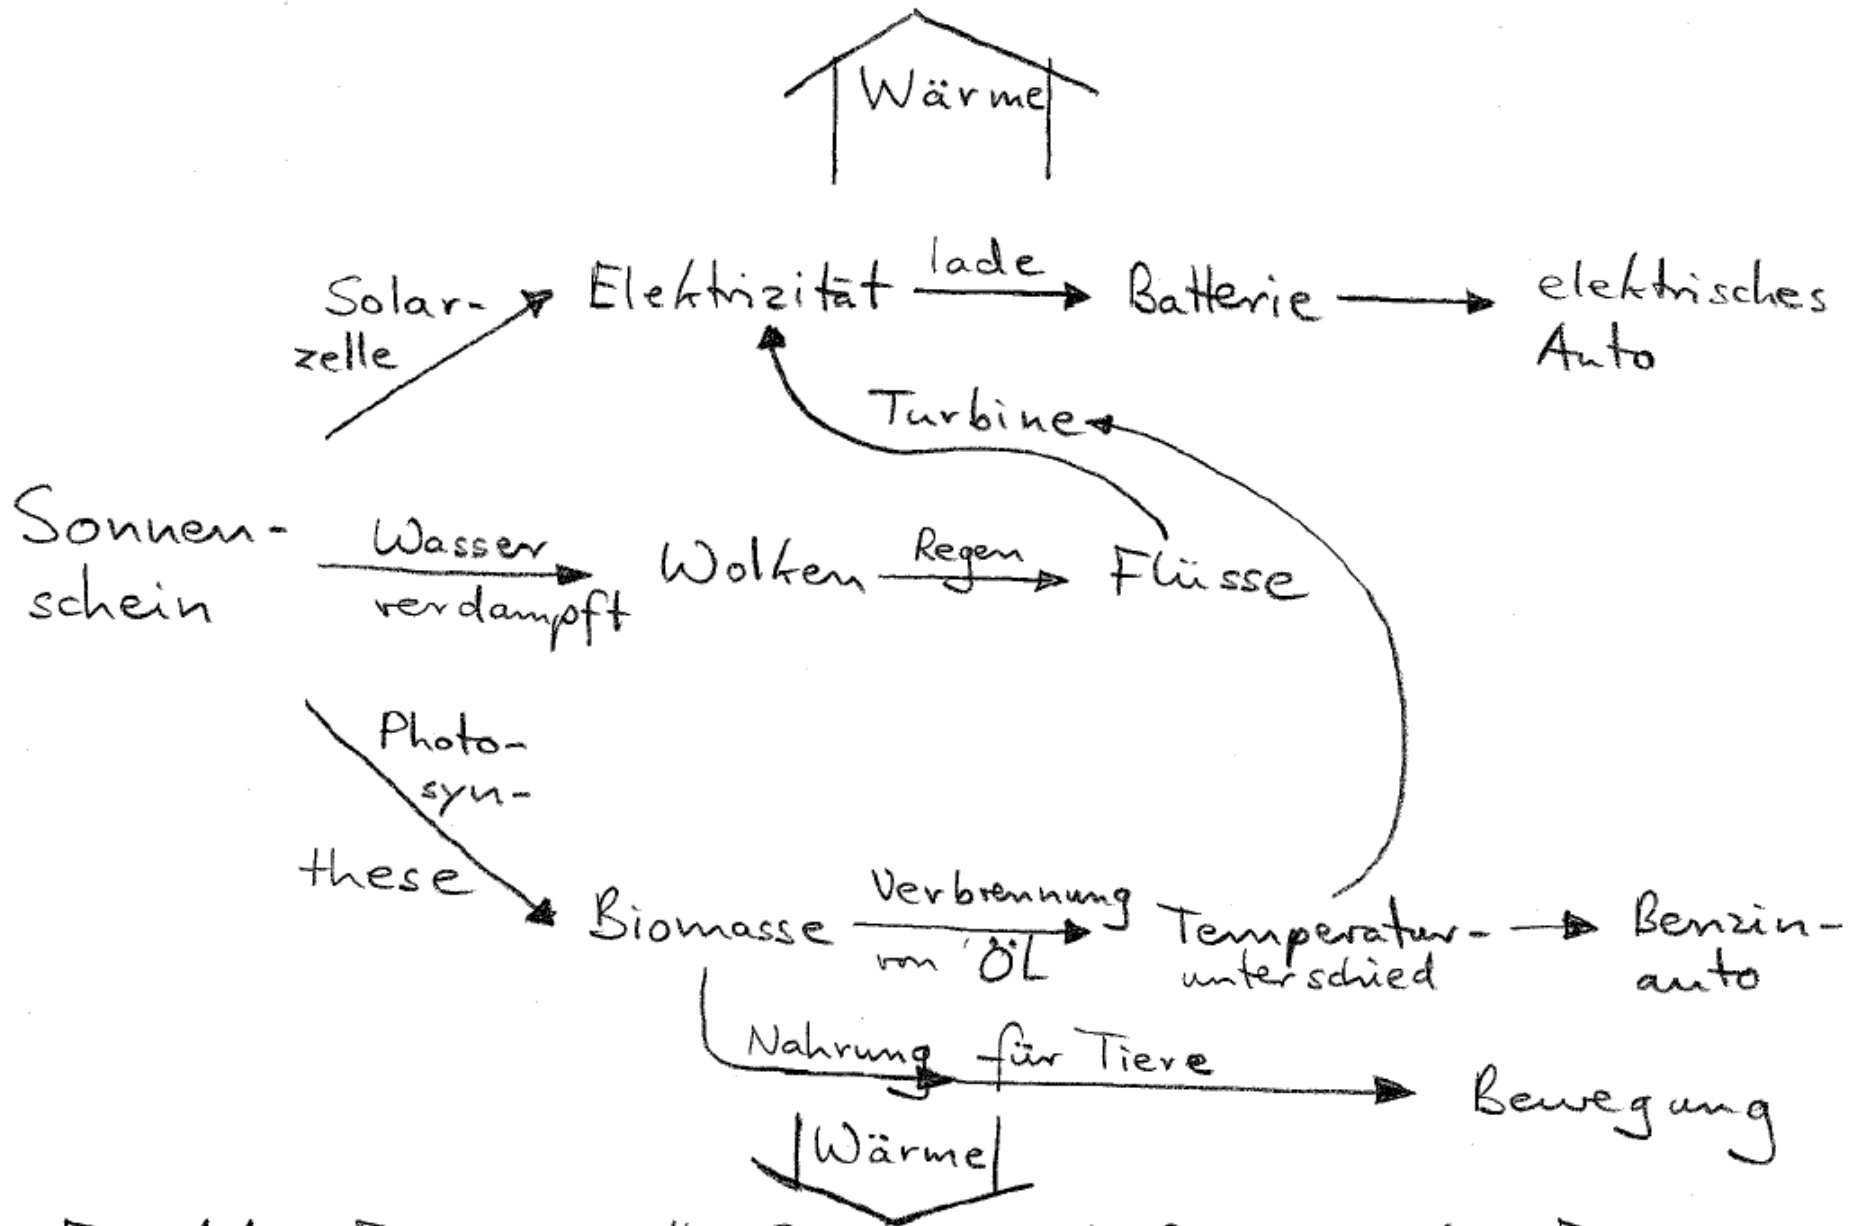 Wärme
Solar-
zelle
Elektrizität
lade
Batterie
elektrisches
Auto
Turbine
Sonnen-
schein
Wasser
verdampft
Wolken
Regen
Flüsse
Photo-
syn-
these
Biomasse
Verbrennung
von Öl
Temperatur-
unterschied
Benzin-
auto
Nahrung für Tiere
Bewegung
Wärme